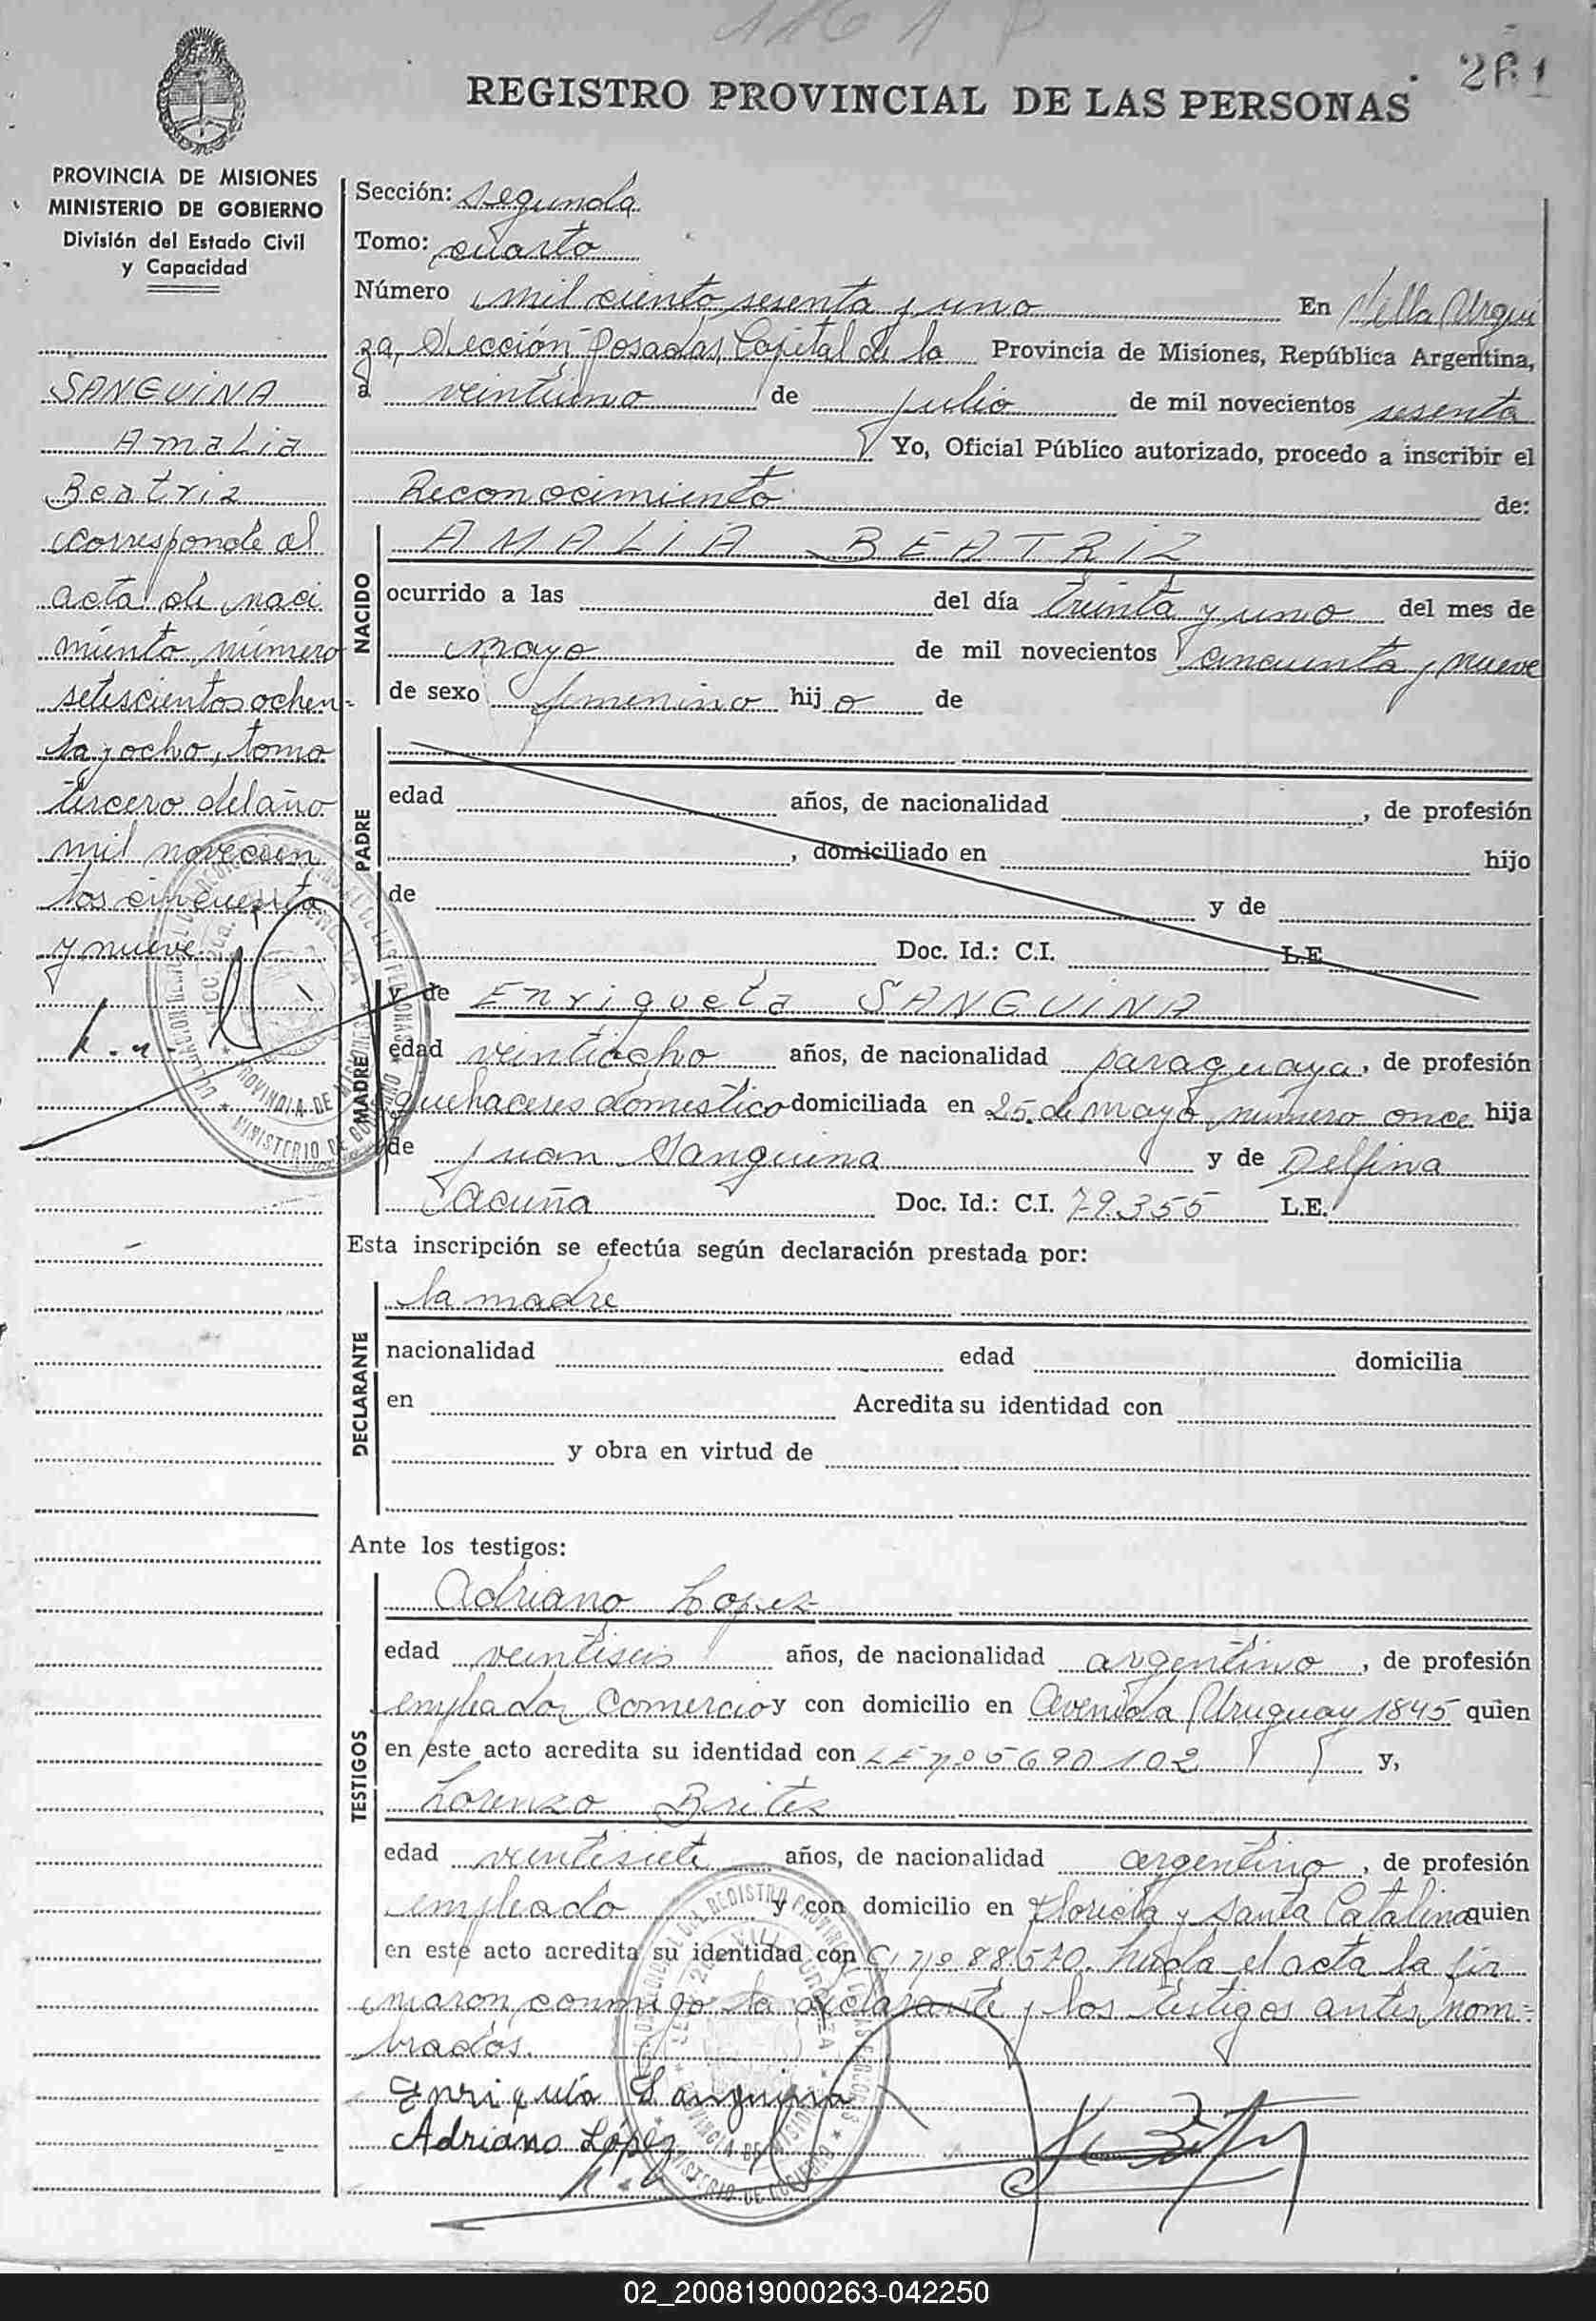 1161
261
REGISTRO PROVINCIAL DE LAS PERSONAS
PROVINCIA DE MISIONES
MINISTERIO DE GOBIERNO
División del Estado Civil
y Capacidad
SANGUINA
Amalia
Beatriz
corresponde al
acta de naci
miento, número
setescientos ochen-
ta y ocho, tomo
tercero del año
mil novecien
tos cincuenta
y nueve.
Sección: segunda
Tomo: cuarto
Número mil ciento sesenta y uno En Villa Urqui
za, Sección Posadas, Capital de la Provincia de Misiones, República Argentina,
a veintiuno de julio de mil novecientos sesenta
Yo, Oficial Público autorizado, procedo a inscribir el
Reconocimiento de:
NACIDO
AMALIA BEATRIZ
ocurrido a las del día treinta y uno del mes de
mayo de mil novecientos cincuenta y nueve
de sexo femenino hijo de
PADRE
edad años, de nacionalidad , de profesión
, domiciliado en hijo
de y de
Doc. Id.: C.I. L.E.
MADRE
y de Enriqueta SANGUINA
edad veintiocho años, de nacionalidad paraguaya, de profesión
quehaceres doméstico domiciliada en 25 de mayo número once hija
de Juan Sanguina y de Delfina
Jacuña Doc. Id.: C.I. 79.355 L.E.
Esta inscripción se efectúa según declaración prestada por:
DECLARANTE
la madre
nacionalidad edad domicilia
en Acredita su identidad con
y obra en virtud de
Ante los testigos:
TESTIGOS
Adriano Lopez
edad veintiseis años, de nacionalidad argentino, de profesión
empleado comercio y con domicilio en Avenida Uruguay 1845 quien
en este acto acredita su identidad con LE nº 5690102 y,
Lorenzo Britez
edad veintisiete años, de nacionalidad argentino, de profesión
empleado y con domicilio en Florida y Santa Catalina quien
en este acto acredita su identidad con CI nº 88.570. Leída el acta la fir
maron conmigo la declarante y los testigos antes nom=
brados.
Enriqueta Sanguina
Adriano López
02_200819000263-042250